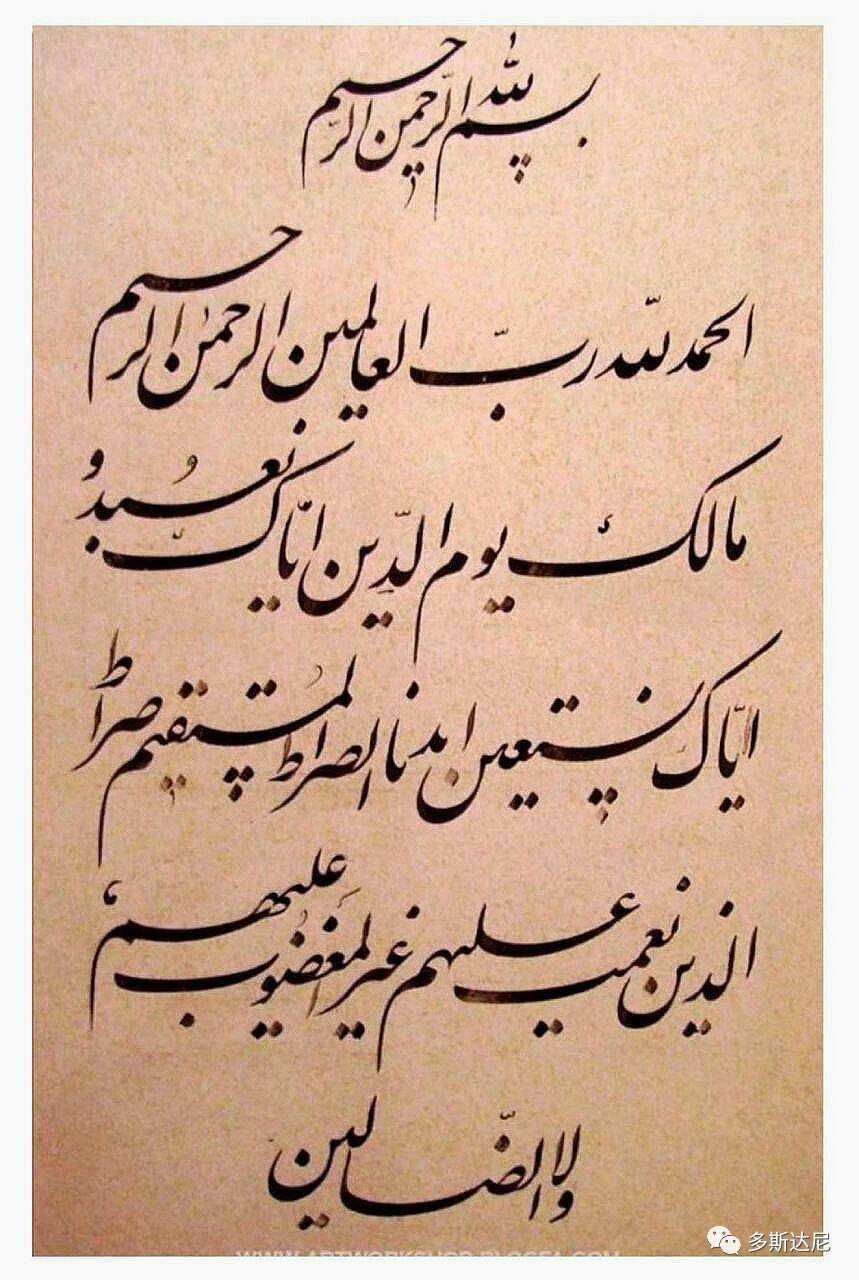 بسم الله الرحمن الرحیم
الحمد لله ربّ العالمین الرحمٰن الرحیم
مالک یوم الدّین ایّاک نعبدُ
ایّاک نستعین اهدنا الصراط المُستقیم صراط
الذین نعمت علیهم غیر المغضُوب علیهم
ولا الضّالین
WWW.ARTWORKSHOP.BLOGFA.COM
多斯达尼